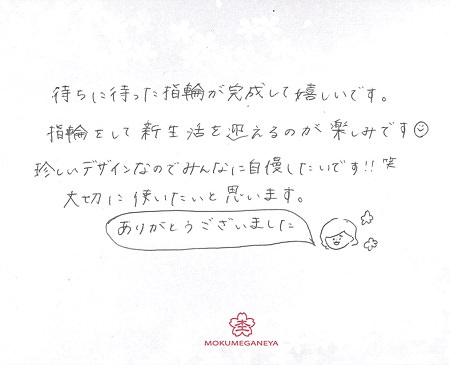 待ちに待った指輪が完成して嬉しいです。
指輪をして新生活を迎えるのが楽しみです☺
珍しいデザインなのでみんなに自慢したいです!! 笑
大切に使いたいと思います。
ありがとうございました
MOKUMEGANEYA